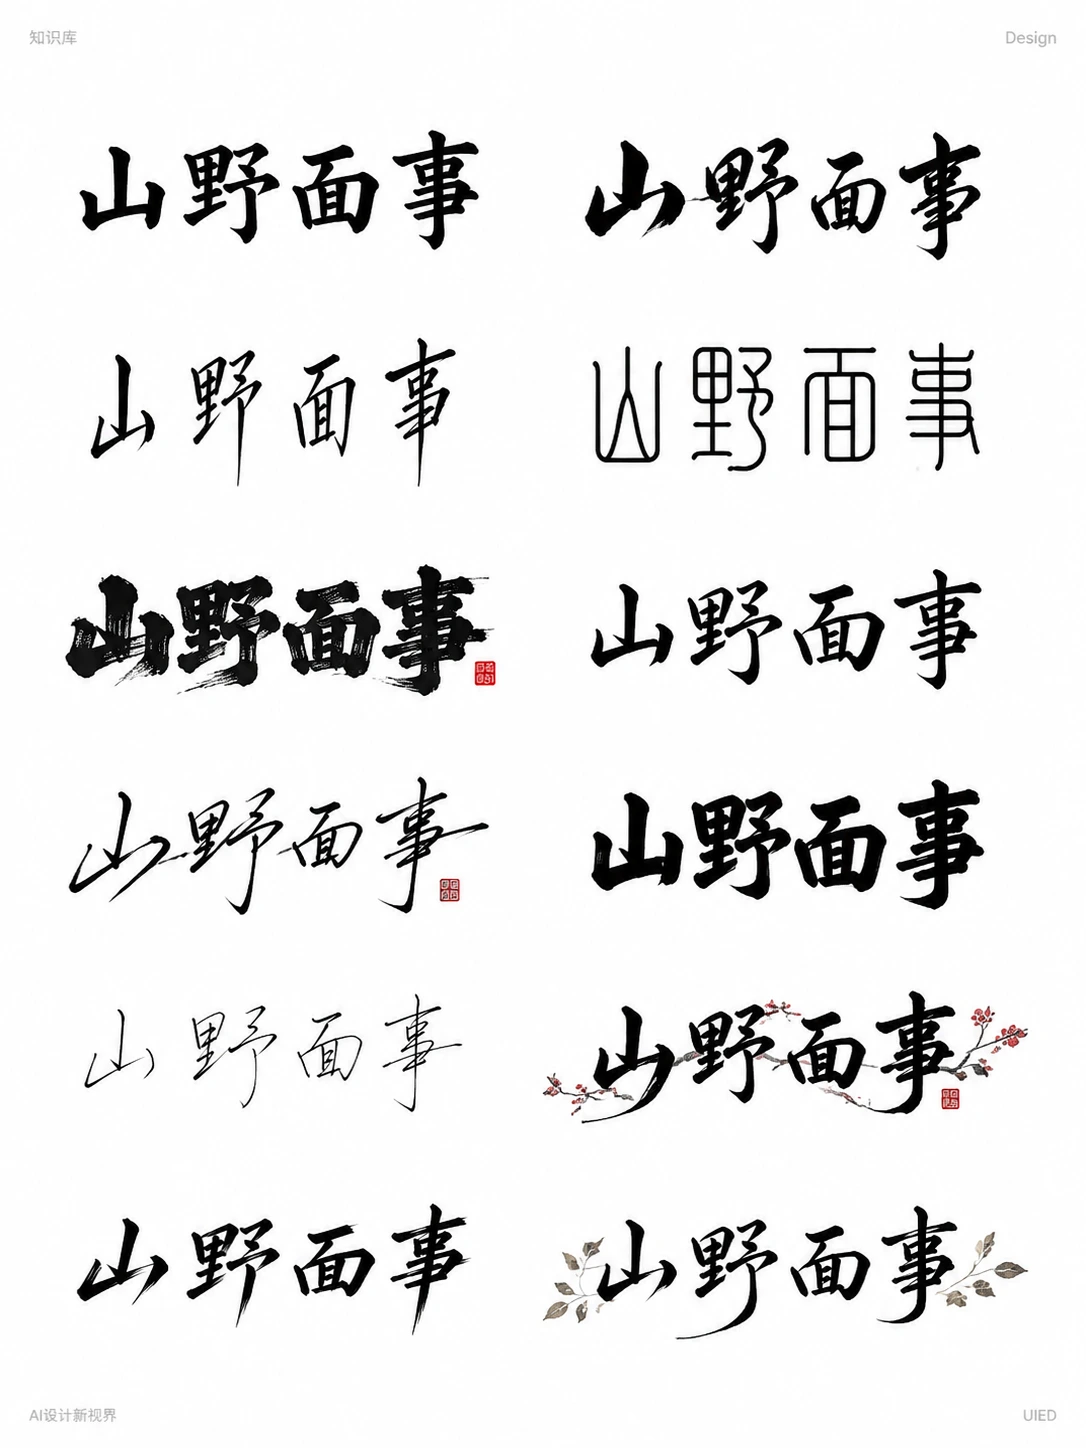 知识库 Design
山野面事 山野面事
山野面事 山野面事
山野面事 山野面事
山野面事 山野面事
山野面事 山野面事
山野面事 山野面事
AI设计新视界 UIED